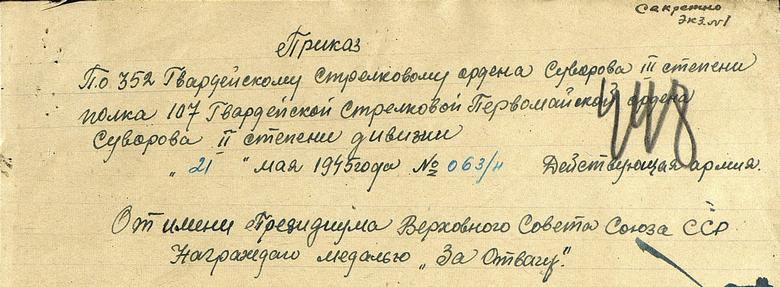 Секретно
Экз. №1
Приказ
По 352 Гвардейскому Стрелковому ордена Суворова III степени
полка 107 Гвардейской Стрелковой Первомайской ордена
Суворова II степени дивизии
„21" мая 1945 года № 063/н Действующая армия.
От имени Президиума Верховного Совета Союза ССР
Награждаю медалью „За Отвагу".